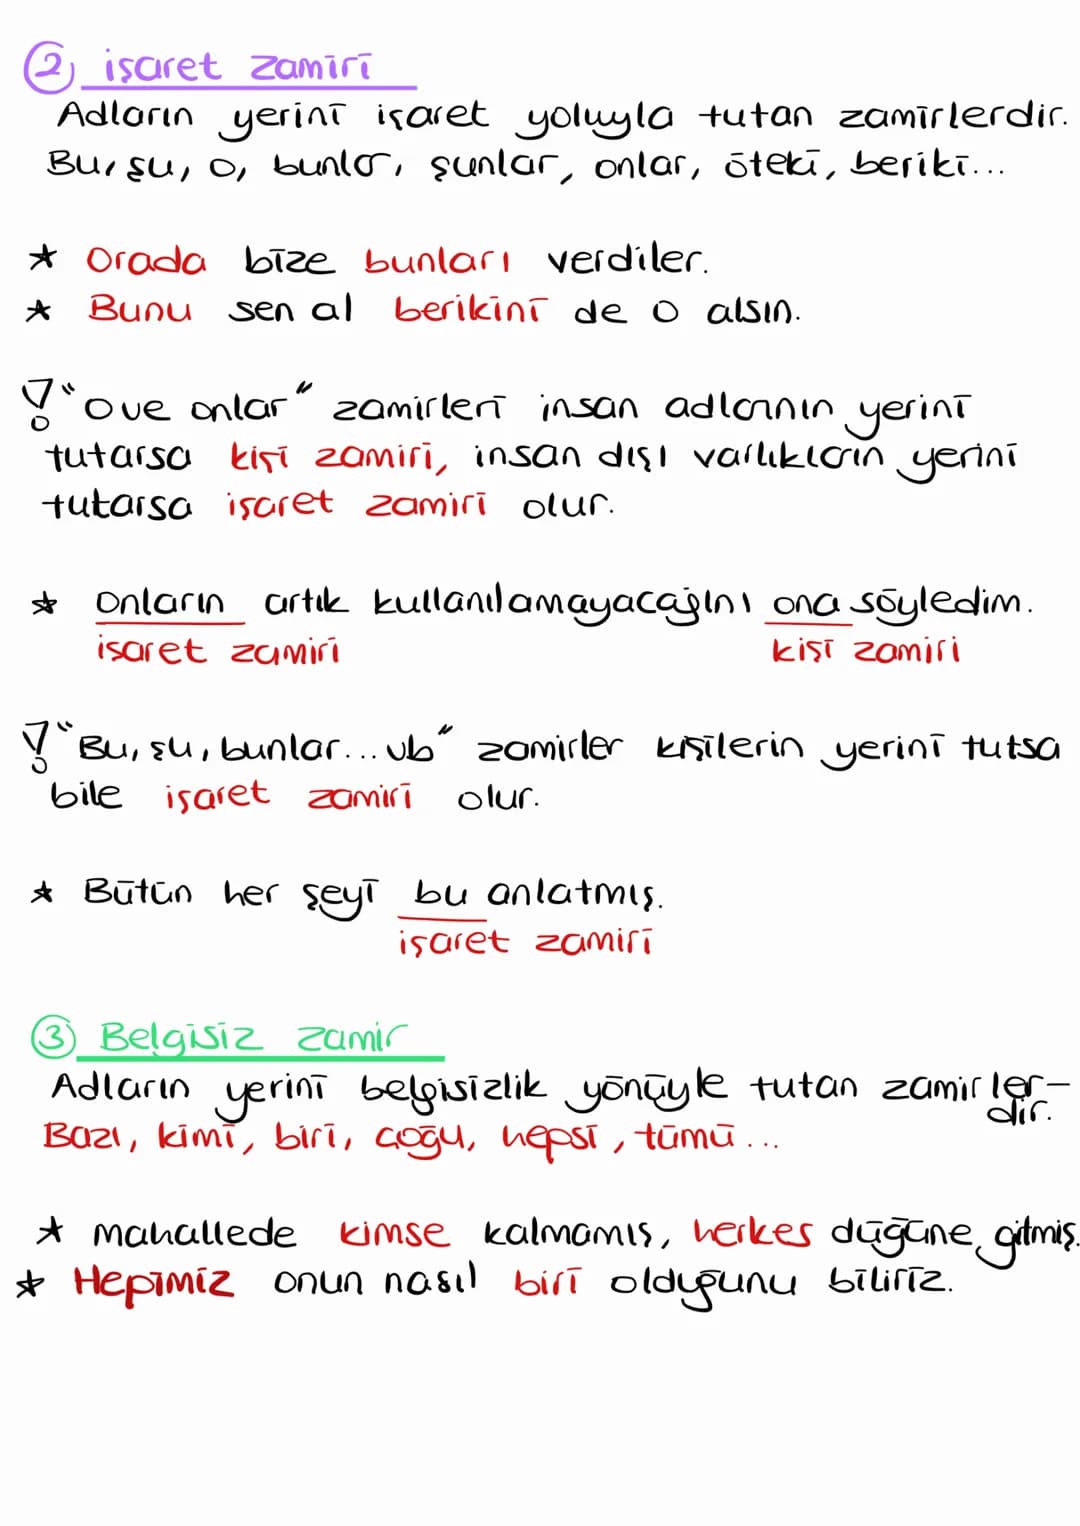 2) işaret zamiri
Adların yerini işaret yoluyla tutan zamirlerdir.
Bu, şu, o, bunlar, şunlar, onlar, öteki, beriki...
* Orada bize bunları verdiler.
* Bunu sen al berikini de o alsın.
! "O ve onlar" zamirleri insan adlarının yerini
tutarsa kişi zamiri, insan dışı varlıkların yerini
tutarsa işaret zamiri olur.
* Onların artık kullanılamayacağını ona söyledim.
işaret zamiri kişi zamiri
! "Bu, şu, bunlar... vb" zamirler kişilerin yerini tutsa
bile işaret zamiri olur.
* Bütün her şeyi bu anlatmış.
işaret zamiri
3) Belgisiz zamir
Adların yerini belgisizlik yönüyle tutan zamirler-
dir.
Bazı, kimi, biri, çoğu, hepsi, tümü...
* Mahallede kimse kalmamış, herkes düğüne gitmiş.
* Hepimiz onun nasıl biri olduğunu biliriz.